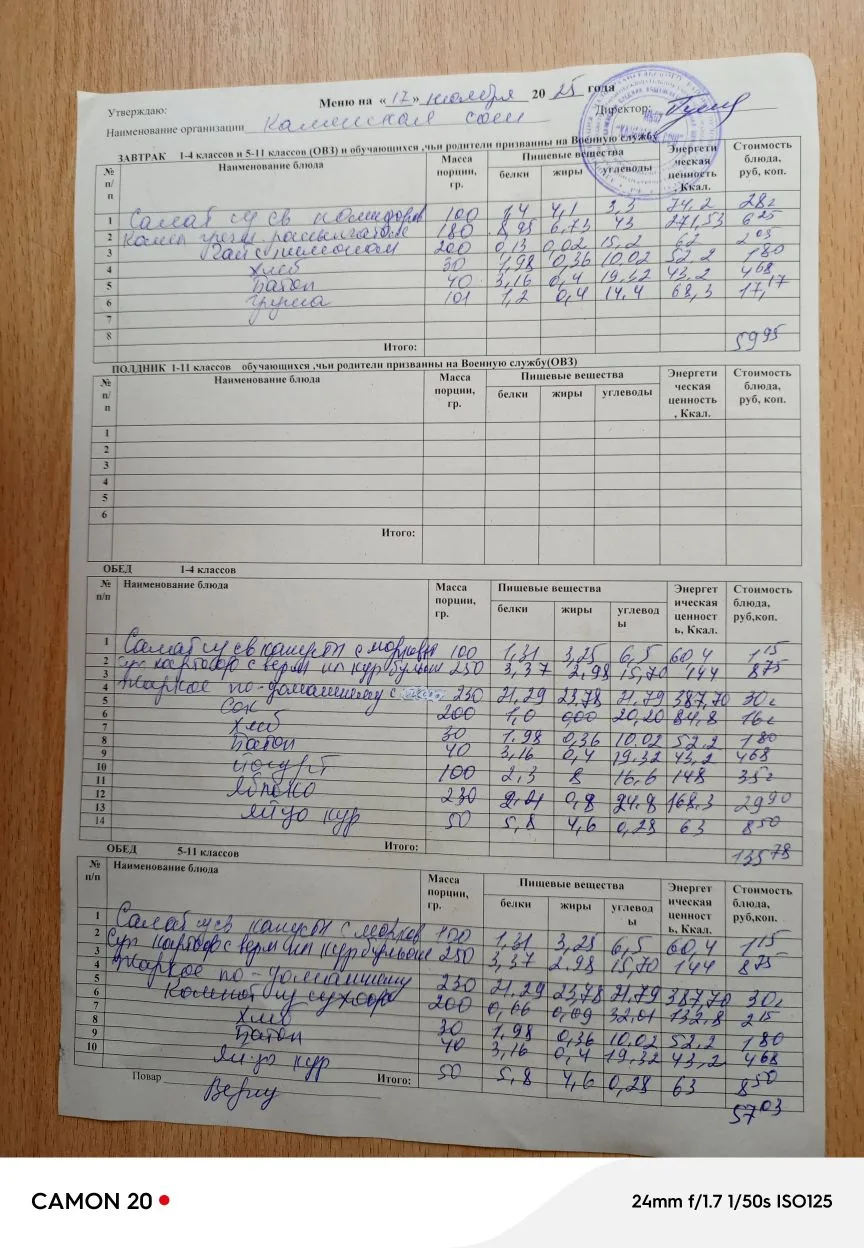 Утверждаю: Меню на «17» ноября 2025 года
Директор:
Наименование организации Каменская сош
ЗАВТРАК 1-4 классов и 5-11 классов (ОВЗ) и обучающихся ,чьи родители призванны на Военную службу
№ п/п Наименование блюда Масса порции, гр. Пищевые вещества белки жиры углеводы Энергетическая ценность, Ккал. Стоимость блюда, руб, коп.
1 Салат из св помидоров 100 1,4 4,1 3,3 74,2 28=
2 Каша гречн рассыпчатая 180 8,95 6,73 43 271,53 6 25
3 Чай с лимоном 200 0,13 0,02 15,2 62 2 05
4 Хлеб 30 1,98 0,36 10.02 52.2 1 80
5 Батон 40 3,16 0,4 19,32 43,2 4 68
6 Груша 101 1,2 0,4 14.4 68,3 17,17
7
8
Итого: 59 95
ПОЛДНИК 1-11 классов обучающихся ,чьи родители призванны на Военную службу(ОВЗ)
№ п/п Наименование блюда Масса порции, гр. Пищевые вещества белки жиры углеводы Энергетическая ценность, Ккал. Стоимость блюда, руб, коп.
1
2
3
4
5
6
Итого:
ОБЕД 1-4 классов
№ п/п Наименование блюда Масса порции, гр. Пищевые вещества белки жиры углеводы Энергетическая ценность, Ккал. Стоимость блюда, руб,коп.
1 Салат из св капусты с морковью 100 1,31 3,25 6,5 60,4 1 15
2 Суп картофор с верм на кур бульоне 250 3,37 2,98 15,70 144 8 75
3 Жаркое по-домашнему с 230 21,29 23,78 21,79 387,70 30=
4 Сок 200 1,0 0,00 20,20 84,8 16=
5 Хлеб 30 1.98 0,36 10.02 52.2 1 80
6 Батон 40 3,16 0,4 19.32 43,2 4 68
7 Йогурт 100 2,3 8 16,6 148 35=
8 Яблоко 230 0,8 24,8 168,3 29 90
9 Яйцо кур 50 5,8 4,6 0,28 63 8 50
10
11
12
13
14
Итого: 135 78
ОБЕД 5-11 классов
№ п/п Наименование блюда Масса порции, гр. Пищевые вещества белки жиры углеводы Энергетическая ценность, Ккал. Стоимость блюда, руб,коп.
1 Салат из св капусты с морков 100 1,31 3,25 6,5 60,4 1 15
2 Суп картофор с верм на кур бульоне 250 3,37 2.98 15,70 144 8 75
3 Жаркое по-домашнему 230 21,29 23,78 21,79 387,70 30=
4 Компот из сухофр 200 0,66 0,09 32,01 132,8 2 15
5 Хлеб 30 1,98 0,36 10.02 52.2 1 80
6 Батон 40 3,16 0,4 19,32 43,2 4 68
7 Яйцо кур 50 5,8 4,6 0,28 63 8 50
8
9
10
Повар Итого: 57 03
CAMON 20 24mm f/1.7 1/50s ISO125